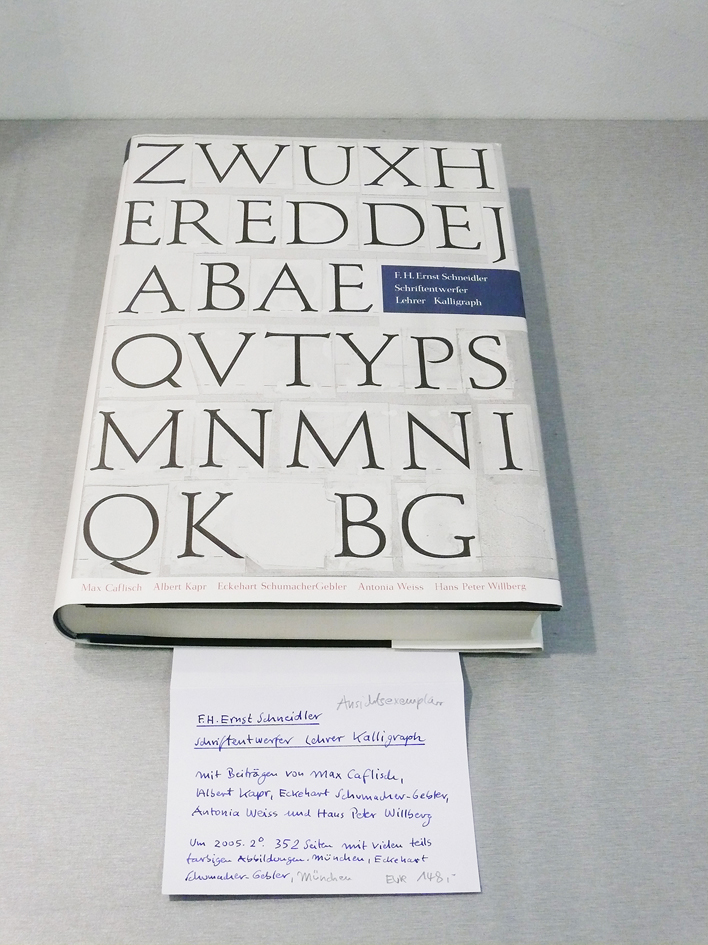 ZWUXH
EREDDEJ
ABAE
F. H. Ernst Schneidler
Schriftentwerfer
Lehrer Kalligraph
QVTYPS
MNMNI
QK BG
Max Caflisch Albert Kapr Eckehart SchumacherGebler Antonia Weiss Hans Peter Willberg
Ansichtsexemplar
F.H. Ernst Schneidler
Schriftentwerfer Lehrer Kalligraph
mit Beiträgen von Max Caflisch,
Albert Kapr, Eckehart Schumacher-Gebler,
Antonia Weiss und Hans Peter Willberg
Um 2005. 2°. 352 Seiten mit vielen teils
farbigen Abbildungen. München, Eckehart
Schumacher-Gebler, München EUR 148,-